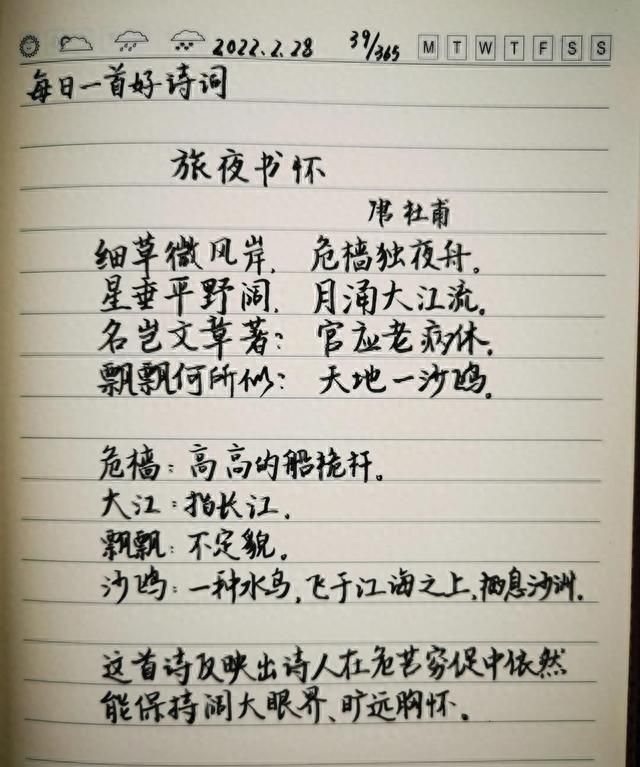 2022.2.28 39/365 M T W T F S S
每日一首好诗词
旅夜书怀
唐 杜甫
细草微风岸, 危樯独夜舟。
星垂平野阔, 月涌大江流。
名岂文章著: 官应老病休。
飘飘何所似: 天地一沙鸥。
危樯: 高高的船桅杆。
大江: 指长江。
飘飘: 不定貌。
沙鸥: 一种水鸟, 飞于江海之上, 栖息沙洲。
这首诗反映出诗人在危苦穷促中依然
能保持阔大眼界、旷远胸怀。